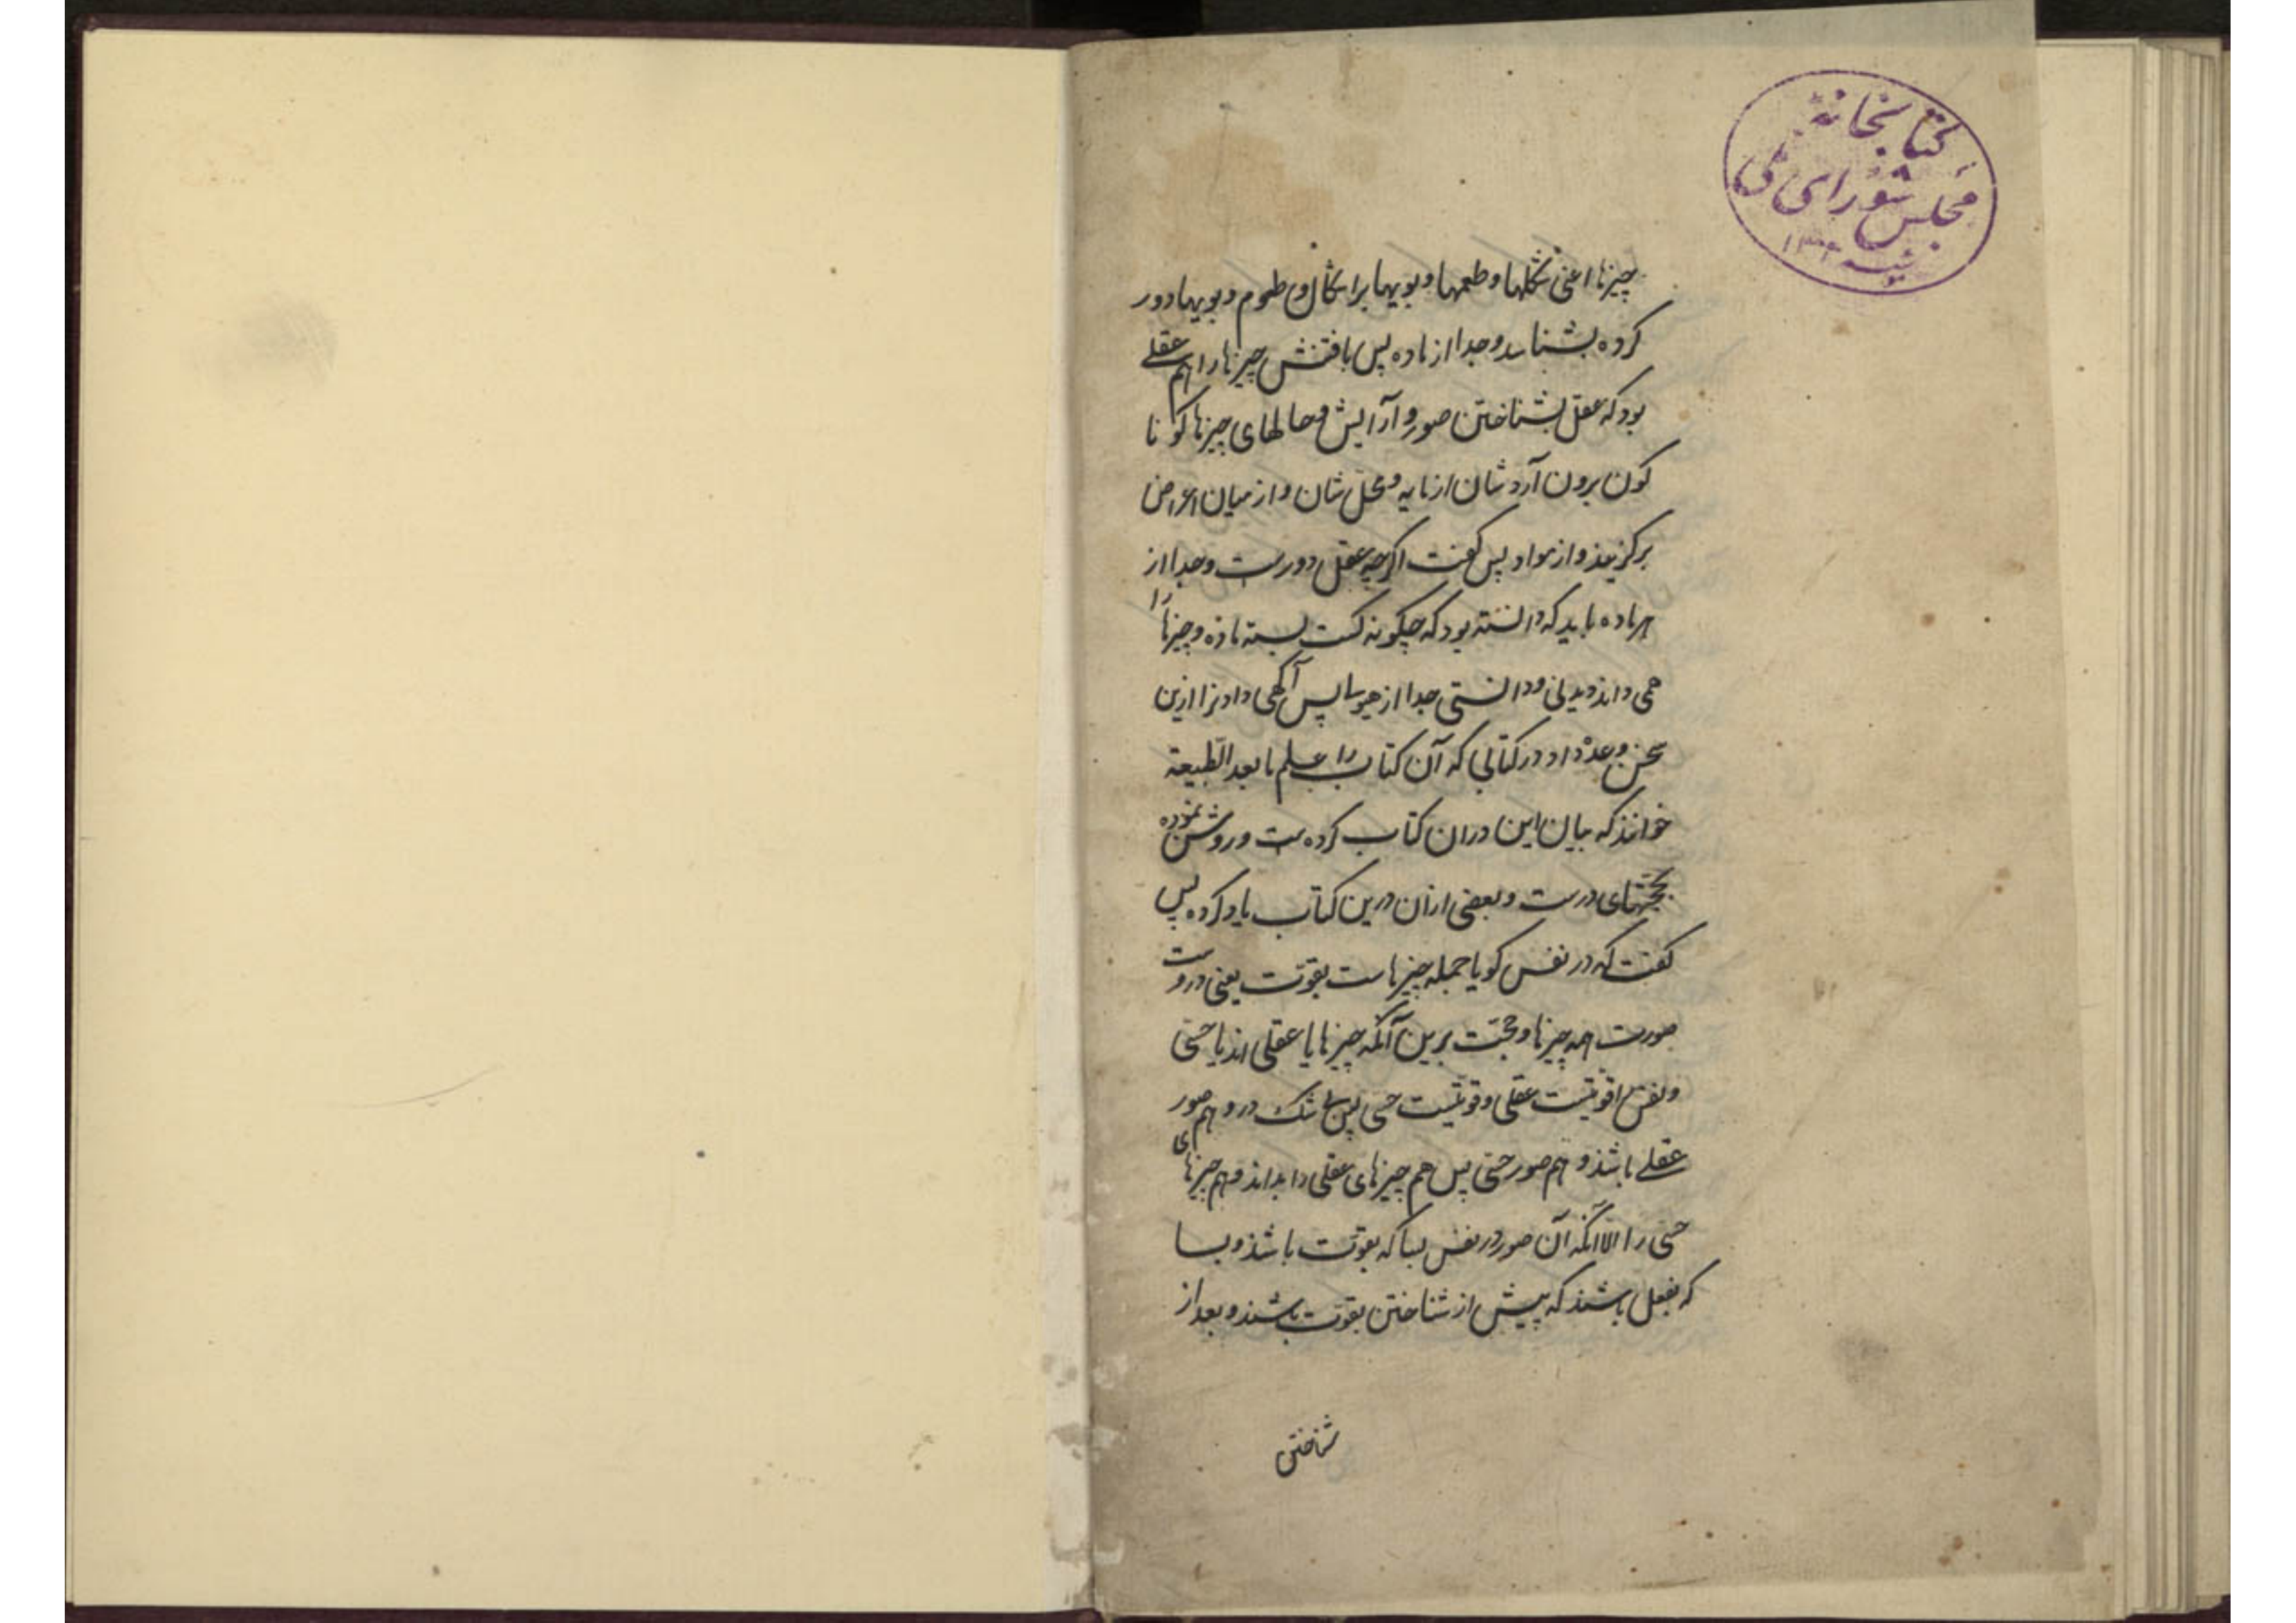 کتابخانهٔ
مجلس شورای ملی
چیزها اعنی شکلها و طعمها و بویها برا شکال و طعوم و بویها دور
کرده بشناسد و جدا از ماده پس یافتنش چیزها را هم عقلے
بود که عقل بشناختن صور و آرایش و حالهای چیزها کو نا
کون برون آرد شان از مایه و محل شان و از میان اعراض
برکزیند و از مواد پس کفت اکرچه عقل دورست و جدا از
هر ماده باید که دانسته بود که چکونه کست بسته ماده و چیزها را
همی داند دیدنی و دانستی جدا از هیولی پس آکهی داد ترا ازین
سخن و وعده داد در کتابی که آن کتاب را علم ما بعد الطبیعة
خوانند که بیان این دران کتاب کرده ست و روشن نموده
بحجتهای درست و بعضی ازان درین کتاب یاد کرده پس
کفت که در نفس کویا جمله چیزهاست بقوت یعنی دروست
صورت همه چیزها و حجت برین آنکه چیزها یا عقلی اند یا حسّی
و نفس را قوتیست عقلی و قوتیست حسی پس بی شک درو هم صور
عقلے باشد و هم صور حسّی پس هم چیزهای عقلی را بداند و هم چیزهای
حسّی را الّا آنکه آن صور در نفس بسا که بقوت باشد و بسا
که بفعل باشند که پیش از شناختن بقوت باشند و بعد از
شناختن